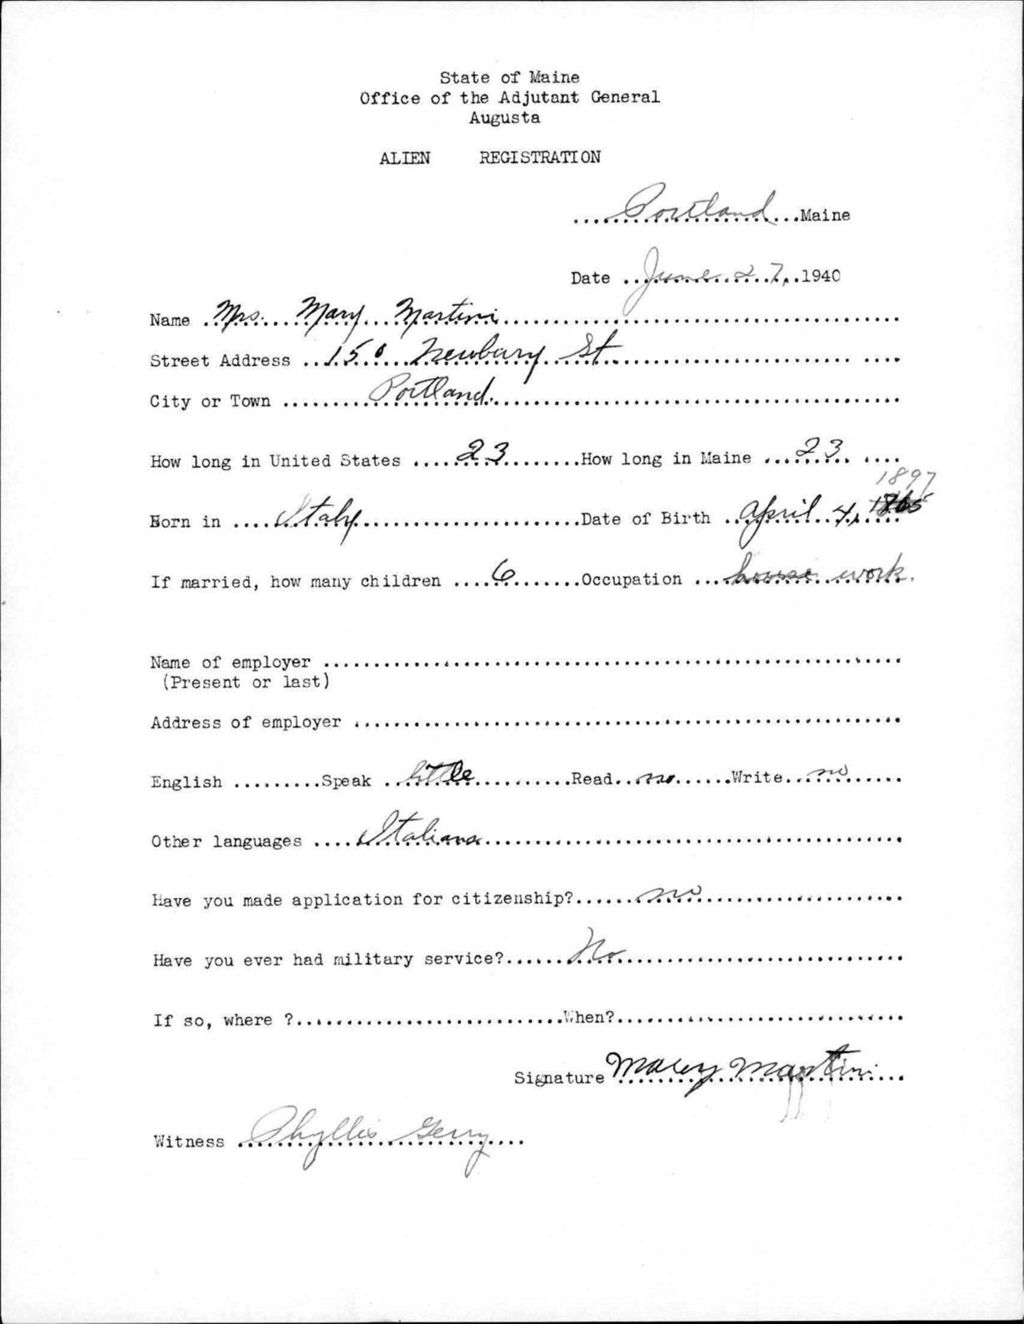 State of Maine
Office of the Adjutant General
Augusta
ALIEN REGISTRATION
Portland Maine
Date June 27, 1940
Name Mrs. Mary Martini
Street Address 150 Newbury St
City or Town Portland.
How long in United States 23 How long in Maine 23
1897
Born in Italy Date of Birth April 4,
If married, how many children 6 Occupation house work.
Name of employer
(Present or last)
Address of employer
English Speak little Read no Write no
Other languages Italians
Have you made application for citizenship? no
Have you ever had military service? No
If so, where ? When?
Signature Mary Martini
Witness Phyllis Gerry